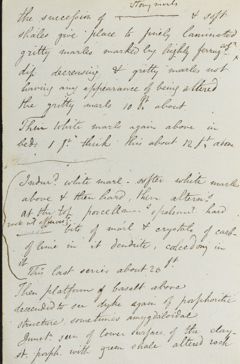 Stony marls
the succession of & soft
shales give place to finely laminated
gritty marls marked by highly ferrugs
dip decreasing & gritty marls not
having any appearance of being altered
the gritty marls 10 ft. about
Then White marls again above in
beds 1 ft. thick this about 12 ft.
Indurd. white marl - softer white marl
above & then hard, then alterns.
at the top porcellan - opaline? hard
bits of marl & crystals of carb
of lime in it dendrite, calcedony in
it
This last series about 20 ft
Then platform of basalt above
descended to see dyke again of porphoritic
structure sometimes amygdaloidal
Junct. seen of lower surface of the clay
st. porph. with green shale altered rock